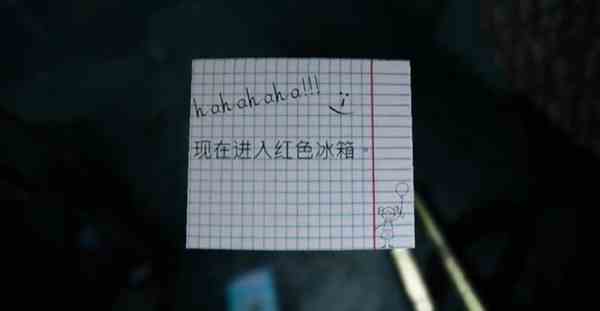 hahahaha!!!
现在进入红色冰箱。